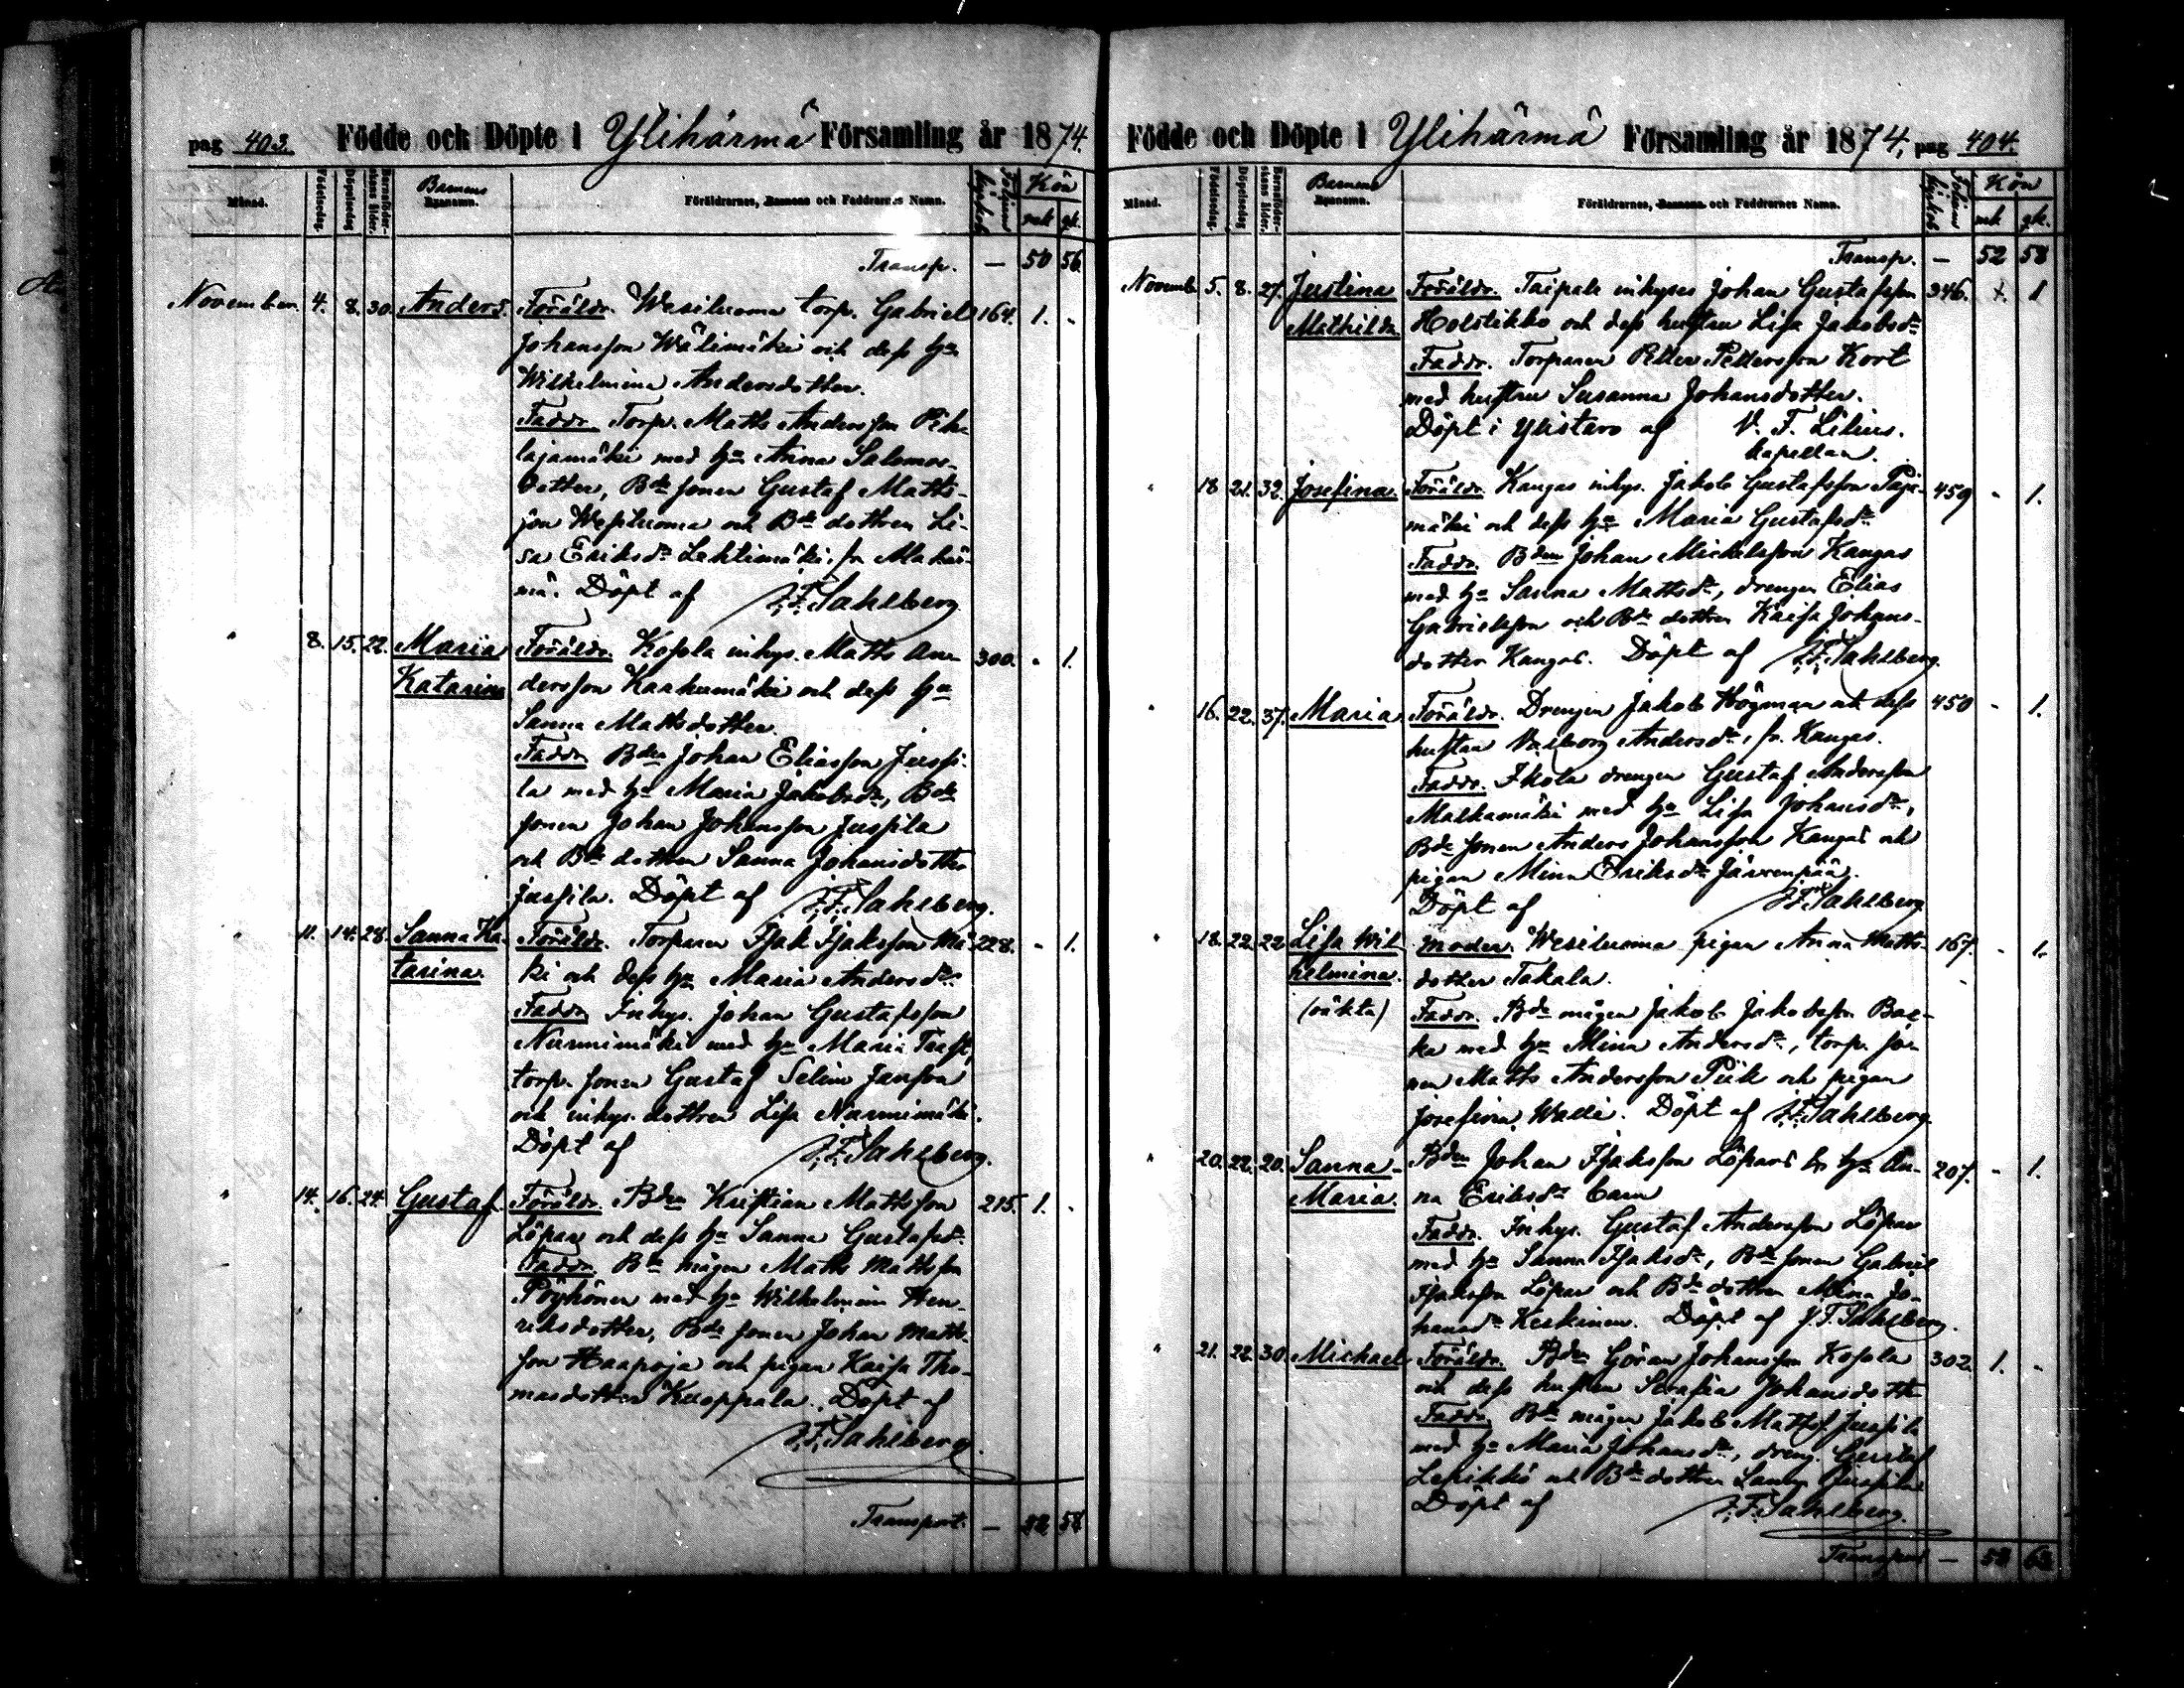 pag 403. Födde och Döpte i Ylihärmä Församling år 1874.
Månad. Födelsedag. Döpelsedag Barnaföder-skans ålder. Barnens Byanamn. Föräldrarnes, Barnens och Faddrarnes Namn. Kön
mk qk.
Transp. — 50 56
November 4. 8. 30. Anders. Föräldr. Wesiluoma torp. Gabriel 164. 1. -
Johansson Wälimäki och dess hu
Wilhelmina Andersdotter.
Faddr. Torp. Matts Andersson Pih-
lajamäki med hu Anna Salomos-
dotter, Bde sonen Gustaf Matts-
son Wesiluoma och Bde dottren Li-
sa Eriksdr Lehtimäki, fr Alahär-
mä. Döpt af J. F. Sahlberg
" 8. 15. 22. Maria Föräldr. Kosola inhys. Matts An- 300. - 1.
Katarina dersson Karhumäki och dess hu
Sanna Mattsdotter.
Faddr Bden Johan Eliasson Jussi-
la med hu Maria Jakobsdr, Bde
sonen Johan Johansson Jussila
och Bde dottren Sanna Johansdotter
Jussila. Döpt af J. F. Sahlberg.
" 11. 14. 28. Sanna Ka- Föräldr. Torparen Isak Isaksson Mä- 228. - 1.
tarina. ki och dess hu Maria Andersdr
Faddr Inhys. Johan Gustafsson
Nurmimäki med hu Maria
torp. sonen Gustaf Selim Jansson
och inhys. dottren Lisa Nurmimäki.
Döpt af J. F. Sahlberg.
" 14. 16. 24. Gustaf Föräldr. Bden Kristian Mattsson 215. 1. -
Löpare och dess hu Sanna Gustafsdr
Faddr. Bde mågen Matts Mattsson
Pöyhönen med hu Wilhelmina Hen-
riksdotter, Bde sonen Johan Matts-
son Haapoja och pigan Kaisa Tho-
masdotter Kuoppala. Döpt af
J. F. Sahlberg.
Transport. — 52 58
Födde och Döpte i Ylihärmä Församling år 1874, pag 404.
Månad. Födelsedag. Döpelsedag Barnaföder-skans ålder. Barnens Byanamn. Föräldrarnes, Barnens och Faddrarnes Namn. Kön
mk qk.
Transp. — 52 58
Novemb. 5. 8. 27. Justina Föräldr. Taipale inhyses Johan Gustafsson 346. 1
Mathilda. Holstikko och dess hustru Lisa Jakobsdr
Faddr. Torparen Petter Pettersson Kort
med hustru Susanna Johansdotter.
Döpt i Ylistaro af V. F. Lilius.
kapellan.
" 18 21. 32. Josefina. Föräldr. Kangas inhys. Jakob Gustafsson 459 - 1.
mäki och dess hu Maria Gustafsdr
Faddr. Bden Johan Mickelsson Kangas
med hu Sanna Mattsdr, drengen Elias
Gabrielsson och Bde dottren Kaisa Johans-
dotter Kangas. Döpt af J. F. Sahlberg.
" 16. 22. 37. Maria. Föräldr. Drengen Jakob Högman och dess 450 - 1.
hustru Valborg Andersdr, fr. Kangas.
Faddr. Ikola drengen Gustaf Andersson
Malkamäki med hu Lisa Johansdr,
Bde sonen Anders Johansson Kangas och
pigan Mina Eriksdr Järvenpää.
Döpt af J. F. Sahlberg
" 18. 22. 22 Lisa Wil- Moder. Wesiluoma pigan Anna Matts- 167. - 1.
helmina. dotter Takala.
(oäkta) Faddr. Bde mågen Jakob Jakobsson
ka med hu Mina Andersdr, torp. so-
nen Matts Andersson Piik och pigan
Josefina Walli. Döpt af J. F. Sahlberg.
" 20. 22. 20. Sanna- Bden Johan Isaksson Löpares hu An- 207. - 1.
Maria. na Eriksdr barn
Faddr. Inhys. Gustaf Andersson Löpare
med hu Sanna Isaksdr, Bde sonen Gabriel
Isaksson Löpare och Bde dottren Mina Jo-
hansdr Keskinen. Döpt af J. F. Sahlberg.
" 21. 22. 30. Michael Föräldr. Bden Göran Johansson Kosola 302. 1. -
och dess hustru Serafia Johansdotter
Faddr. Bde mågen Jakob Mattss. Jussila
med hu Maria Johansdr, dreng. Gustaf
och Bde dottren Sanna Jussila
Döpt af J. F. Sahlberg.
Transport — 53 63